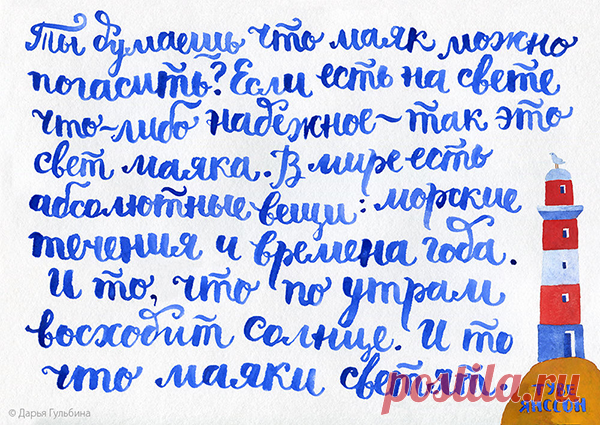 Ты думаешь что маяк можно
погасить? Если есть на свете
что-либо надежное ~ так это
свет маяка. В мире есть
абсолютные вещи: морские
течения и времена года.
И то, что по утрам
восходит солнце. И то
что маяки светят.
postila.ru
© Дарья Гульбина
ТУВЕ
ЯНССОН